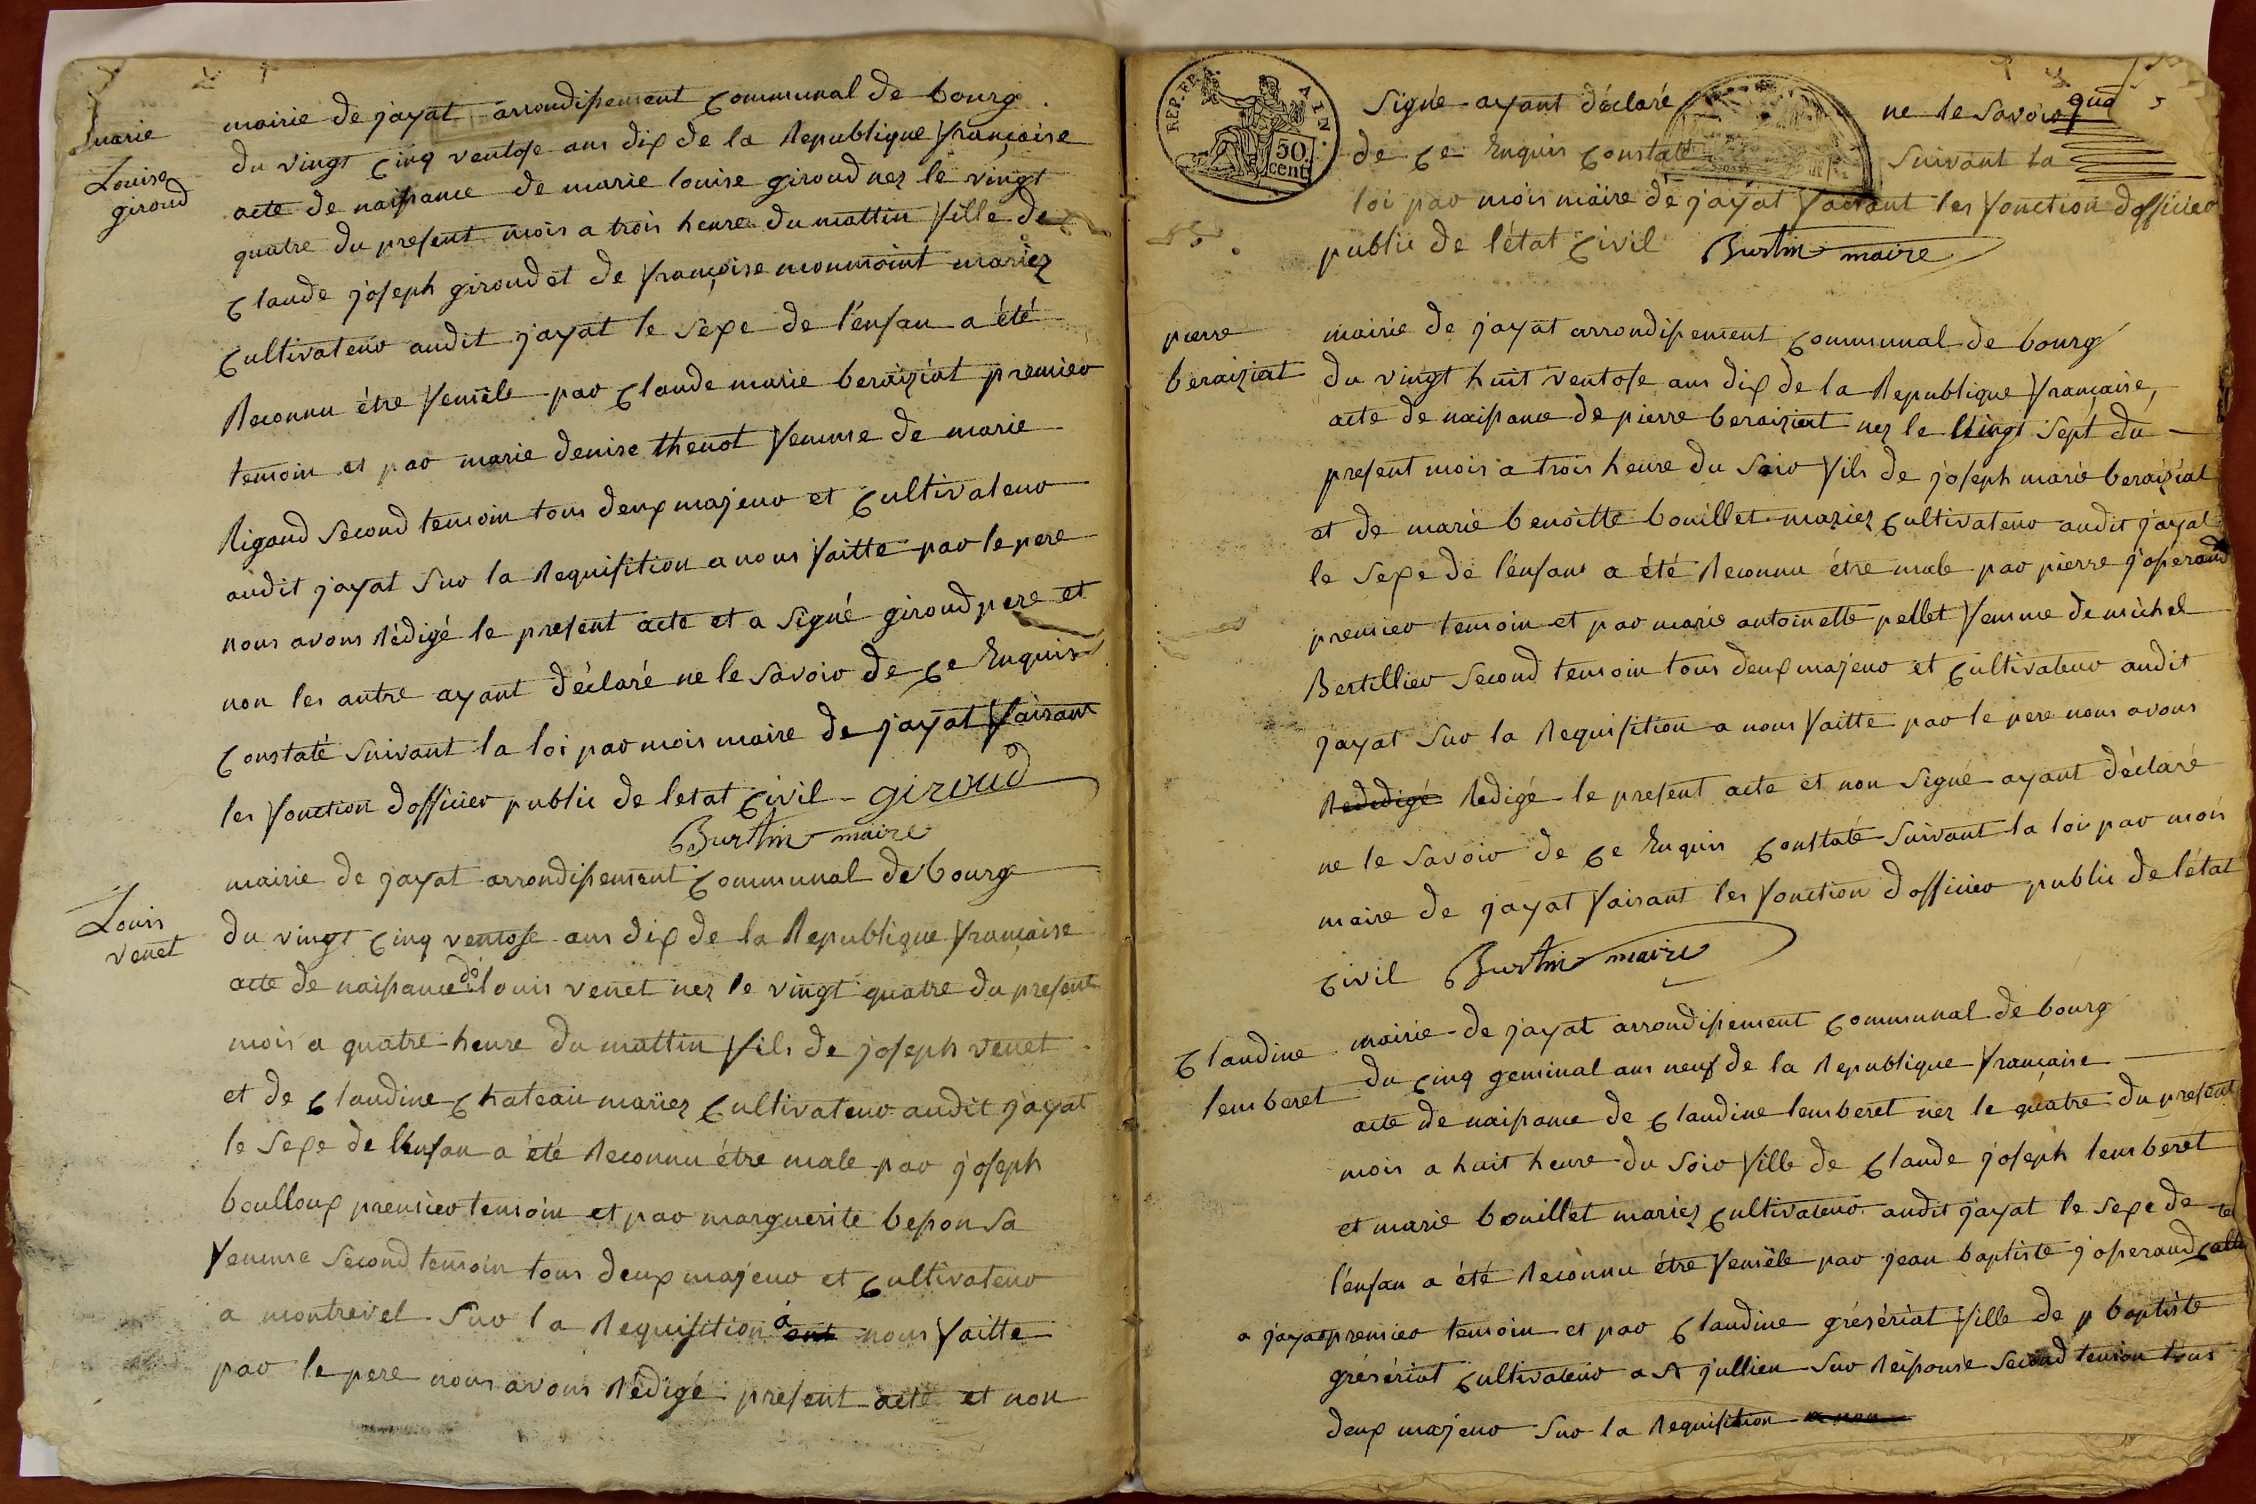 marie
Louise
giroud
mairie de jayat arrondissement Communal de bourg
du vingt Cinq ventose ans dix de la Republique française
acte de naissance de marie louise giroud nez le vingt
quatre du present mois a trois heure du mattin fille de
Claude joseph giroud et de françoise monmoint mariez
Cultivateur audit jayat le sexe de l'enfan a été
Reconnu étre femèle par Claude marie beraiziat premier
temoin et par marie denise thenot femme de marie
Rigaud Second temoin tous deux majeur et Cultivateur
audit jayat Sur la Requisition a nous faitte par le pere
nous avons rédigé le present acte et a Signé giroud pere et
non les autre ayant déclaré ne le Savoir de Ce Enquis
Constaté Suivant la loi par mois maire de jayat faisant
les fonction dofficier public de letat Civil - giroud
Burtin maire
Louis
venet
mairie de jayat arrondissement Communal de bourg
du vingt Cinq ventose ans dix de la Republique française
acte de naissance de louis venet nez le vingt quatre du present
mois a quatre heure du mattin fils de joseph venet
et de Claudine Chateau mariez Cultivateur audit jayat
le Sexe de l'enfan a été Reconnu étre male par joseph
boulloux premier temoin et par marguerite besson Sa
femme Second temoin tous deux majeur et Cultivateur
a montrevel Sur la Requisition à nous faitte
par le pere nous avons rédigé present acte et non
REP. FRA. AIN.
50
cent
Signé ayant déclaré ne le Savoir
de Ce Enquis Constaté Suivant la
loi par mois maire de jayat faisant les fonction dofficier
public de létat Civil Burtin maire
pierre
beraiziat
mairie de jayat arrondissement Communal de bourg
du vingt huit ventose ans dix de la Republique française,
acte de naissance de pierre beraiziat nez le vingt Sept du
present mois a trois heure du Soir fils de joseph marie beraiziat
et de marie benoitte bouillet mariez Cultivateur audit jayat
le Sexe de l'enfans a été Reconnu étre male par pierre josserand
premier temoin et par marie antoinette pellet femme de michel
Bertillier Second temoin tous deux majeur et Cultivateur audit
jayat Sur la Requisition a nous faitte par le pere nous avons
Rededigé Redigé le present acte et non Signé ayant déclaré
ne le Savoir de Ce Enquis Constaté Suivant la loi par mois
maire de jayat faisant les fonction dofficier public de l'état
Civil Burtin maire
Claudine
lemberet
mairie de jayat arrondissement Communal de bourg
du Cinq germinal ans neuf de la Republique française
acte de naissance de Claudine lemberet nez le quatre du present
mois a huit heure du Soir fille de Claude joseph lemberet
et marie bouillet mariez Cultivateur audit jayat le Sexe de
l'enfan a été Reconnu étre femèle par jean baptiste josserand
a jayat premier temoin et par Claudine grésériat fille de p baptiste
grésériat Cultivateur a St jullien Sur Reissouse Second temoin tous
deux majeur Sur la Requisition a nou